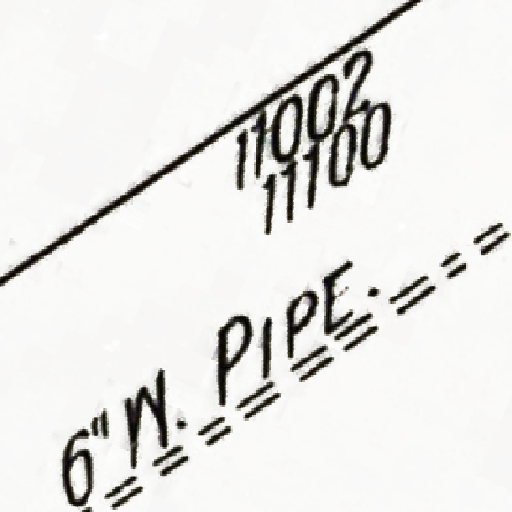 11002
11100
6" W. PIPE.